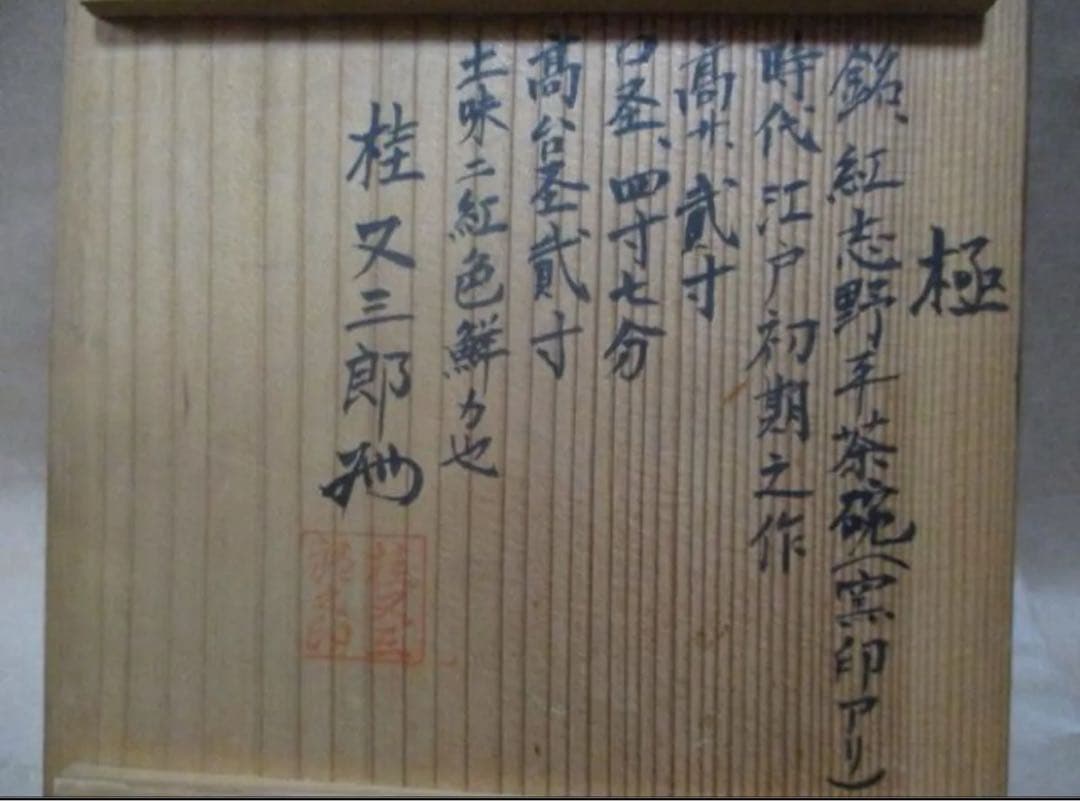 極
銘、紅志野平茶碗(窯印アリ)
時代 江戸初期之作
高サ、貳寸
口圣、四寸七分
高台圣貳寸
土味ニ紅色鮮カ也
桂又三郎
桂又三
郎之印